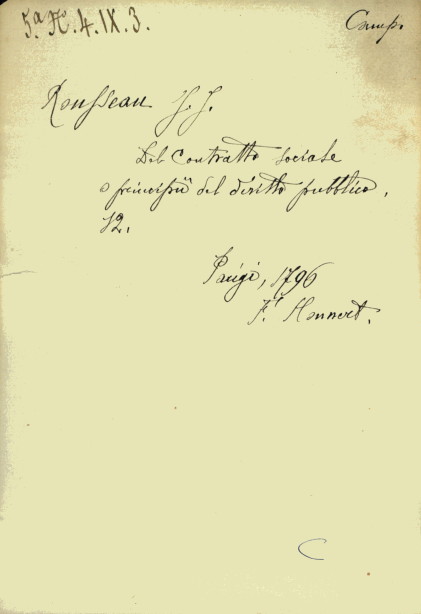 5.ª H.4.IX.3.
Camp.
Rousseau J. J.
Del Contratto sociale
o principii del diritto pubblico.
12.
Parigi, 1796
Honnert.
C